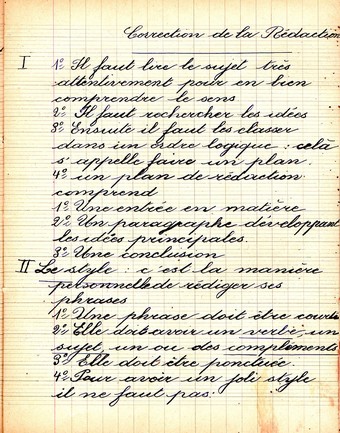 Correction de la Rédaction
I 1° Il faut lire le sujet très
attentivement pour en bien
comprendre le sens
2° Il faut rechercher les idées
3° Ensuite il faut les classer
dans un ordre logique : celà
s'appelle faire un plan.
4° un plan de rédaction
comprend
1° Une entrée en matière
2° Un paragraphe développant
les idées principales.
3° Une conclusion
II Le style : c'est la manière
personnelle de rédiger ses
phrases
1° Une phrase doit être courte
2° Elle doit avoir un verbe, un
sujet, un ou des compléments
3° Elle doit être ponctuée
4° Pour avoir un joli style
il ne faut pas: